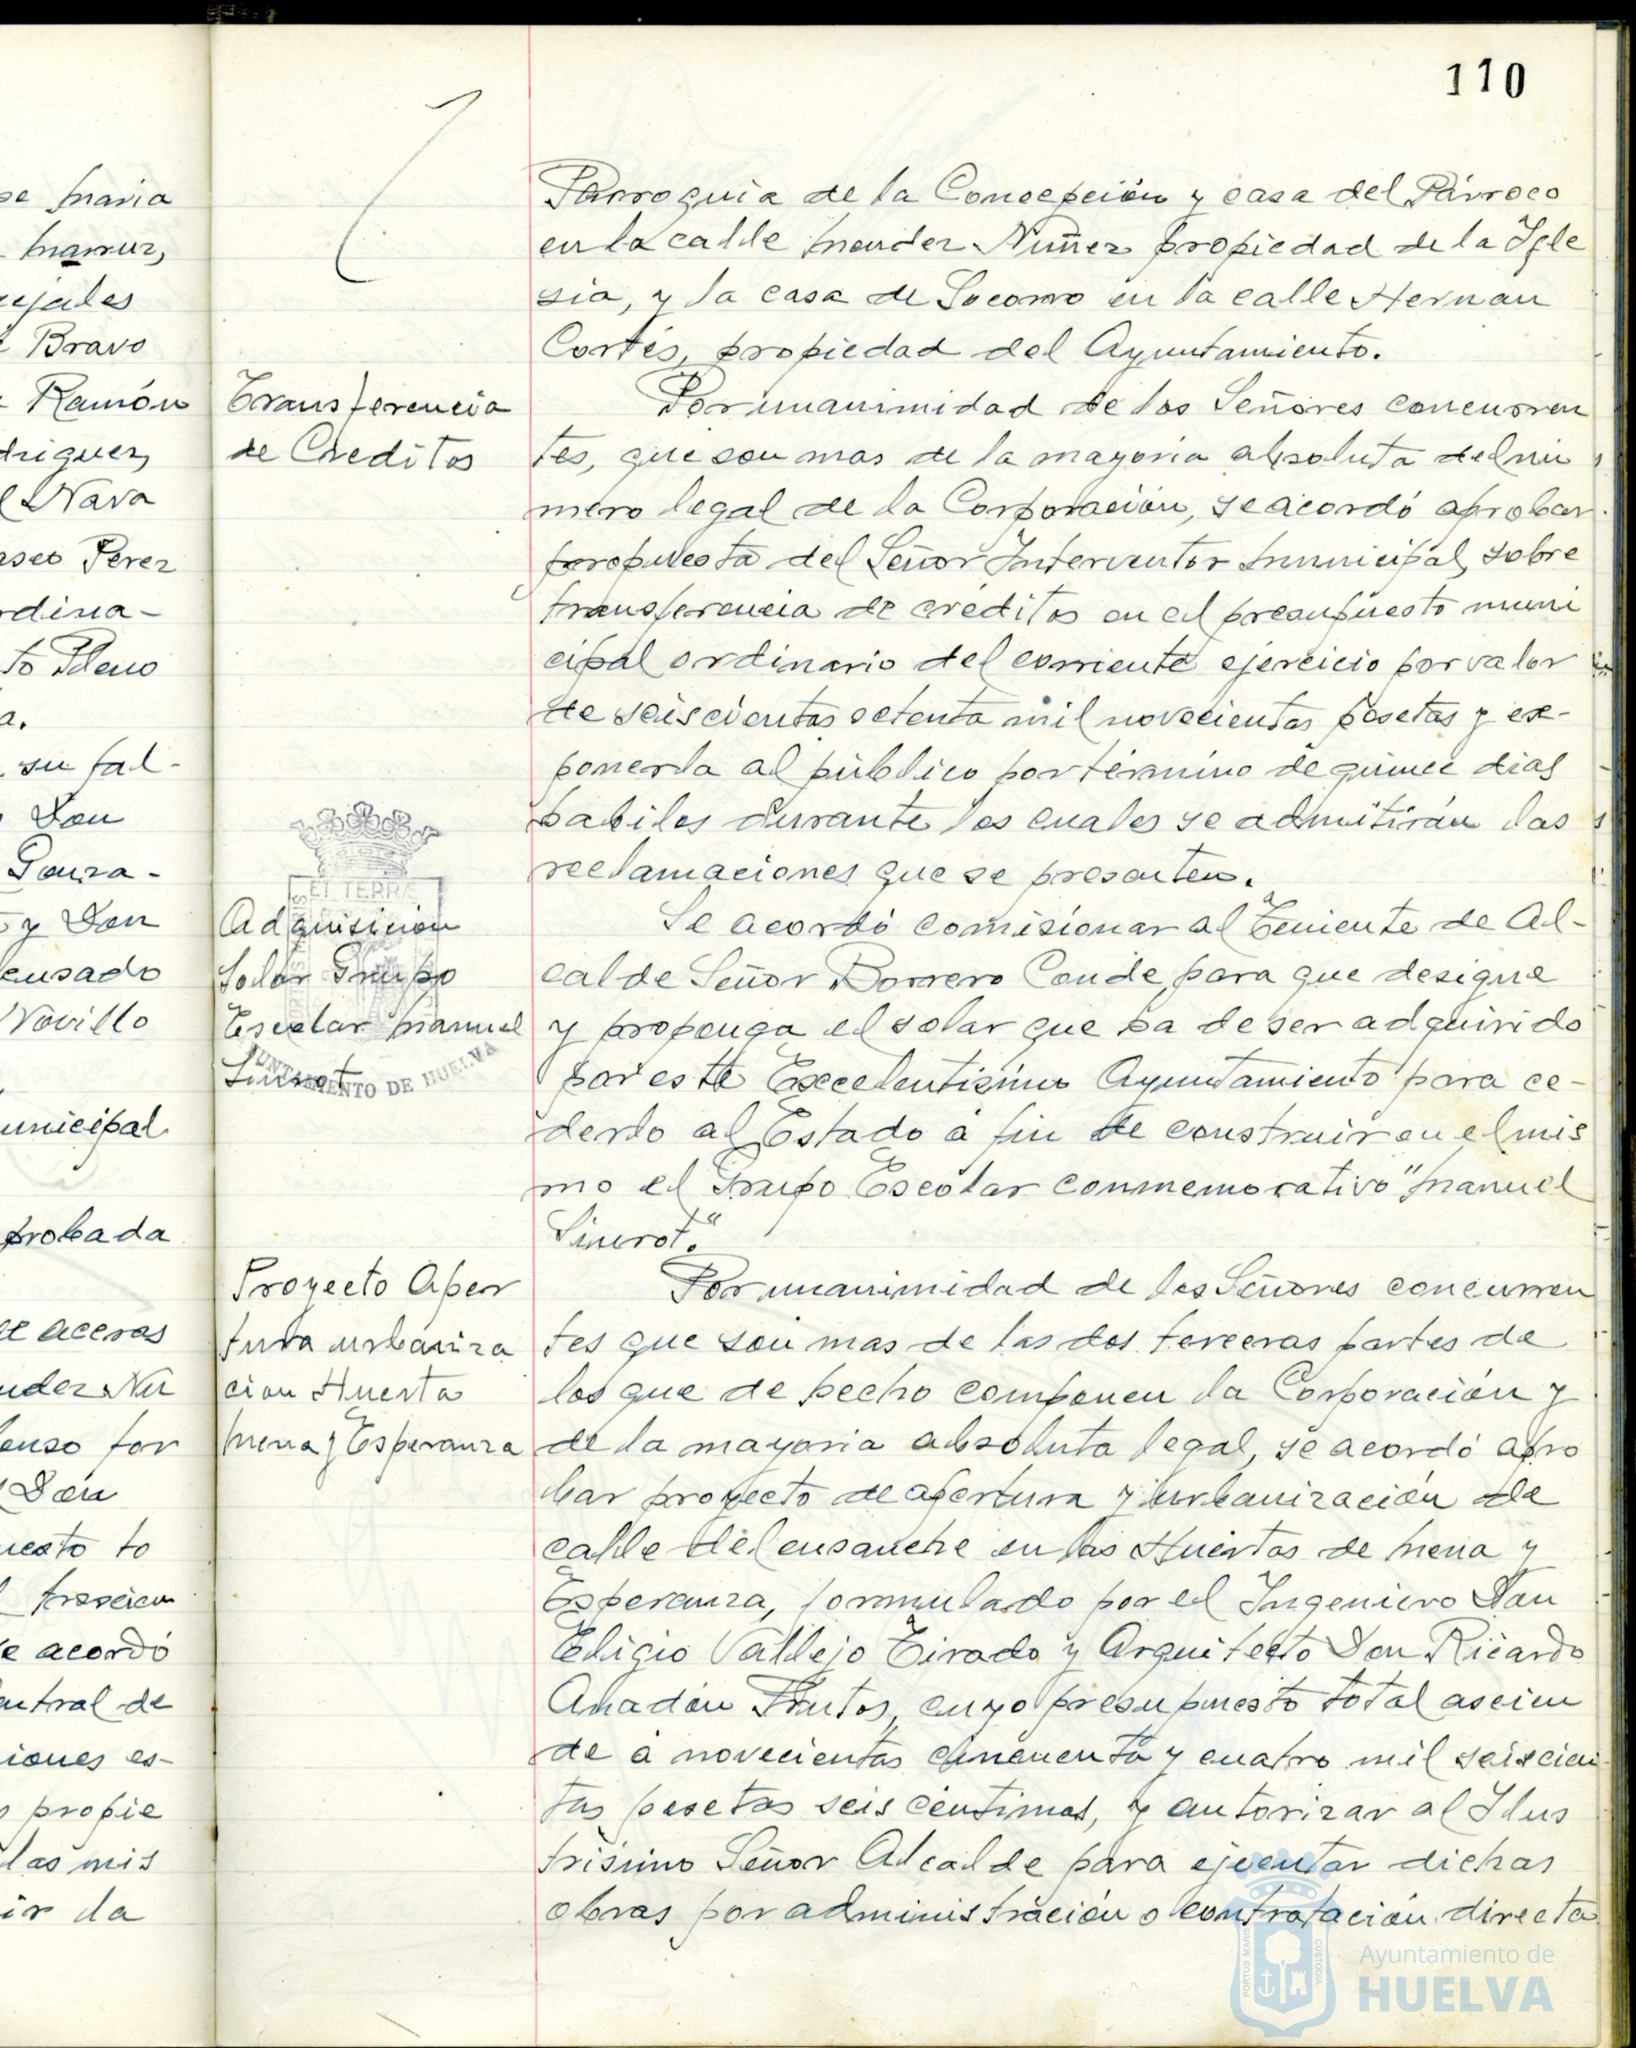 110
se Maria
Marruz,
cejales
Bravo
Ramón
driguez,
Nava
asco Perez
rdina-
to Pleno
a.
su fal-
Don
Gonza-
y Don
ensado
Novillo
unicipal
probada
de aceras
ndez Nu
onso for
Don
uesto to
fraccion
e acordó
entral de
iones es-
propie
las mis
ir la
Transferencia
de Creditos
Adquisicion
Solar Grupo
Escolar Manuel
Siurot
ET TERRÆ
AYUNTAMIENTO DE HUELVA
Proyecto Aper
tura urbaniza
cion Huerta
Mena y Esperanza
Parroquia de la Concepción y casa del Párroco
en la calle Mendez Nuñez propiedad de la Igle
sia, y la casa de Socorro en la calle Hernan
Cortés, propiedad del Ayuntamiento.
Por unanimidad de los Señores concurren
tes, que son mas de la mayoria absoluta del nú
mero legal de la Corporación, se acordó aprobar
propuesta del Señor Interventor Municipal, sobre
transferencia de créditos en el presupuesto muni
cipal ordinario del corriente ejercicio por valor
de seiscientas setenta mil novecientas pesetas y ex-
ponerla al público por término de quince dias
habiles durante los cuales se admitirán las
reclamaciones que se presenten.
Se acordó comisionar al Teniente de Al-
calde Señor Borrero Conde, para que designe
y proponga el solar que ha de ser adquirido
por este Excelentisimo Ayuntamiento para ce-
derlo al Estado a fin de construir en el mis
mo el Grupo Escolar conmemorativo "Manuel
Siurot".
Por unanimidad de los Señores concurren
tes que son mas de las dos terceras partes de
los que de hecho componen la Corporación y
de la mayoria absoluta legal, se acordó apro
bar proyecto de apertura y urbanización de
calle del ensanche en las Huertas de Mena y
Esperanza, formulado por el Ingeniero Don
Eligio Vallejo Tirado y Arquitecto Don Ricardo
Anadón Frutos, cuyo presupuesto total ascien
de a novecientas cincuenta y cuatro mil seiscien
tas pesetas seis céntimos, y autorizar al Ilus
trisimo Señor Alcalde para ejecutar dichas
obras por administración o contratación directa
PORTUS MARIS
CUSTODIA
Ayuntamiento de
HUELVA